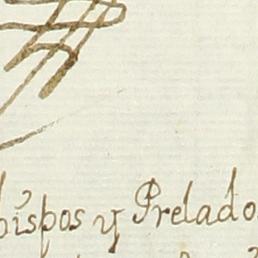 hispos y Prelado